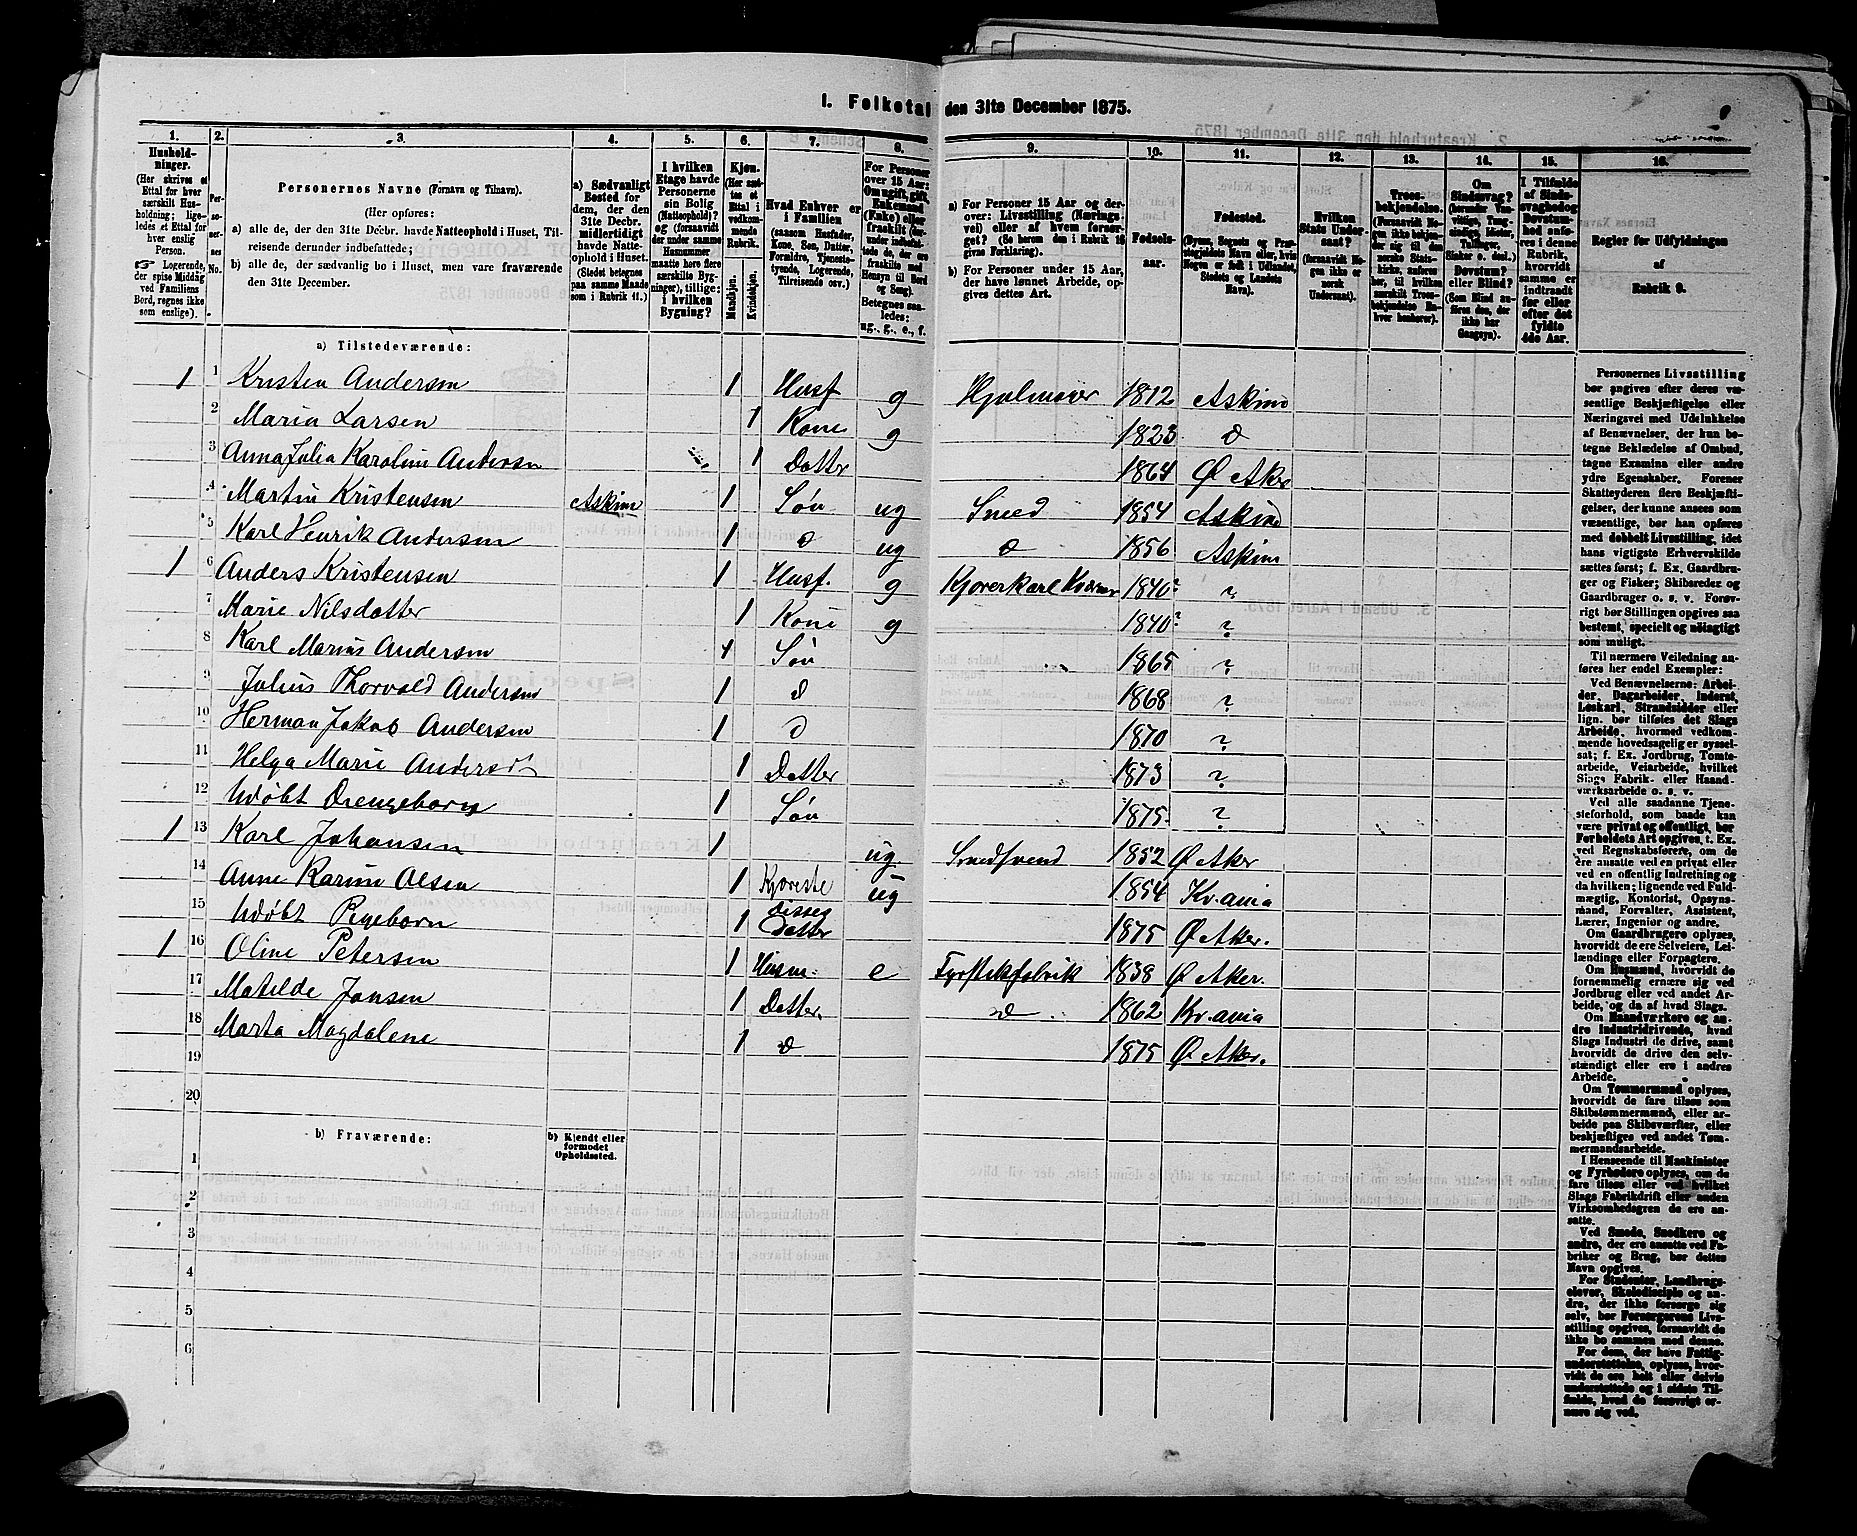 1. Folketal den 31te December 1875.
1. 2. 3. 4. 5. 6. 7. 8. 9. 10. 11. 12. 13. 14. 15. 16.
Husholdninger. (Her skrives et Ettal for hver særskilt Husholdning; ligeledes et Ettal for hver enslig Person. ☞ Logerende, der spise Middag ved Familiens Bord, regnes ikke som enslige).
Personernes No.
Personernes Navne (Fornavn og Tilnavn).
(Her opføres:
a) alle de, der den 31te Decbr. havde Natteophold i Huset, Tilreisende derunder indbefattede;
b) alle de, der sædvanlig bo i Huset, men vare fraværende den 31te December.
a) Sædvanligt Bosted for dem, der den 31te Decbr. midlertidigt havde Natteophold i Huset. (Stedet betegnes paa samme Maade som i Rubrik 11.)
I hvilken Etage havde Personerne sin Bolig (Natteophold)? og (forsaavidt der under samme Husnummer maatte høre flere særskilte Bygninger), tillige: i hvilken Bygning?
Kjøn. (Her sættes et Ettal i vedkommende Rubrik. Mandkjøn. Kvindekjøn.
Hvad Enhver er i Familien (saasom Husfader, Kone, Søn, Datter, Forældre, Tjenestetyende, Logerende, Tilreisende osv.)
For Personer over 15 Aar: Om ugift, gift, Enkemand (Enke) eller fraskilt
Betegnes saaledes: ug., g., e., f.
a) For Personer 15 Aar og derover: Livsstilling (Næringsvei) eller af hvem forsørget? (Se herom den i Rubrik 16 givne Forklaring).
b) For Personer under 15 Aar, der have lønnet Arbeide, opgives dettes Art.
Fødselsaar.
Fødested. (Byens, Sognets og Præstegjeldets Navn eller, hvis Nogen er født i Udlandet, Stedets og Landets Navn).
Hvilken Stats Undersaat? (forsaavidt Nogen ikke er norsk Undersaat).
Troesbekjendelse.
Om Sindssvag?
Døvstum? eller Blind?
I Tilfælde af Sindssvaghed og Døvstumhed anføres i denne Rubrik, hvorvidt samme er indtraadt før eller efter det fyldte 4de Aar.
Regler for Udfyldningen af Rubrik 9.
a) Tilstedeværende:
1 1 Kristen Andersen 1 Husf g Hjulmager 1812 Askim
2 Maria Larsen 1 Kone g 1823 d
3 Anna Julia Karoline Andersen 1 Datter 1864 Ø Aker
4 Martin Kristensen Askim 1 Søn ug Smed 1854 Askim
5 Karl Henrik Andersen 1 d ug d 1856 Askim
1 6 Anders Kristensen 1 Husf. g Kjørerkarl 1840? ?
7 Marie Nilsdatter 1 Kone g 1840? ?
8 Karl Marius Andersen 1 Søn 1865 ?
9 Julius Thorvald Andersen 1 d 1868 ?
10 Herman Jakob Andersen 1 d 1870 ?
11 Helga Marie Andersd 1 Datter 1873 ?
12 Udøbt Drengebarn 1 Søn 1875 ?
1 13 Karl Johansen 1 ug. Smedsvend 1852 Ø Aker
14 Anne Karine Olsen 1 Kjæreste ug 1854 Kr.ania
15 Udøbt Pigebarn 1 disses Datter 1875 Ø Aker.
1 16 Oline Petersen 1 Husm. e Fyrstikfabrik 1838 Ø Aker.
17 Matilde Jansen 1 Datter. d 1862 Kr.ania
18 Marta Magdalene 1 d 1875 Ø Aker.
19
20
b) Fraværende: b) Kjendt eller formodet Opholdssted.
1
2
3
4
5
6
Personernes Livsstilling
bør angives efter deres væ-
sentlige Beskjæftigelse eller
Næringsvei med Udelukkelse
af Benævnelser, der kun be-
tegne Beklædelse af Ombud,
tagne Examina eller andre
ydre Egenskaber. Forener
Skatteyderen flere Beskjæfti-
gelser, der kunne ansees som
væsentlige, bør han opføres
med dobbelt Livsstilling, idet
hans vigtigste Erhvervskilde
sættes først; f. Ex. Gaardbru-
ger og Fisker; Skibsreder og
Gaardbruger o. s. v. Forøv-
rigt bør Stillingen opgives saa
bestemt, specielt og nøiagtigt
som muligt.
Til nærmere Veiledning an-
føres her endel Exempler:
Ved Benævnelserne: Arbei-
der, Dagarbeider, Inderst,
Løskarl, Strandsidder eller
lign. bør tilføies det Slags
Arbeide, hvormed vedkom-
mende hovedsagelig er syssel-
sat; f. Ex. Jordbrug, Tomte-
arbeide, Veiarbeide, hvilket
Slags Fabrik- eller Haand-
værksarbeide o. s. v.
Ved alle saadanne Tjene-
steforhold, som baade kan
være privat og offentligt, bør
Forholdets Art opgives, t. Ex.
ved Regnskabsførere, om de
ere ansatte ved en privat eller
ved en offentlig Indretning og
da hvilken; lignende ved Fuld-
mægtig, Kontorist, Opsyns-
mand, Forvalter, Assistent,
Lærer, Ingeniør og andre.
Om Gaardbrugere oplyses,
hvorvidt de ere Selveiere, Lei-
lændinge eller Forpagtere.
Om Husmænd, hvorvidt de
fornemmelig ernære sig ved
Jordbrug eller ved andet Ar-
beide, og da af hvad Slags.
Om Haandværkere og an-
dre Industridrivende, hvad
Slags Industri de drive, samt
hvorvidt de drive den selv-
stændigt eller ere i andres
Arbeide.
Om Tømmermænd oplyses,
hvorvidt de fare tilsøs som
Skibstømmermænd, eller ar-
beide paa Skibsværfter, eller
beskjæftiges ved andet Tøm-
mermandsarbeide.
I Henseende til Maskinister
og Fyrbødere oplyses, om de
fare tilsøs eller ved hvilket
Slags Fabrikdrift eller anden
Virksomhedsgren de ere an-
satte.
Ved Smede, Snedkere og
andre, der ere ansatte ved Fa-
briker og Brug, bør dettes
Navn opgives.
For Studenter, Landbrugs-
elever, Skoledisciple og an-
dre, der ikke forsørge sig
selv, bør Forsørgerens Livs-
stilling opgives, forsaavidt de
ikke bo sammen med denne.
For dem, der have Fattig-
understøttelse, oplyses, hvor-
vidt de ere helt eller delvis
understøttede og i sidste Til-
fælde, hvad de forøvrigt er-
nære sig ved.